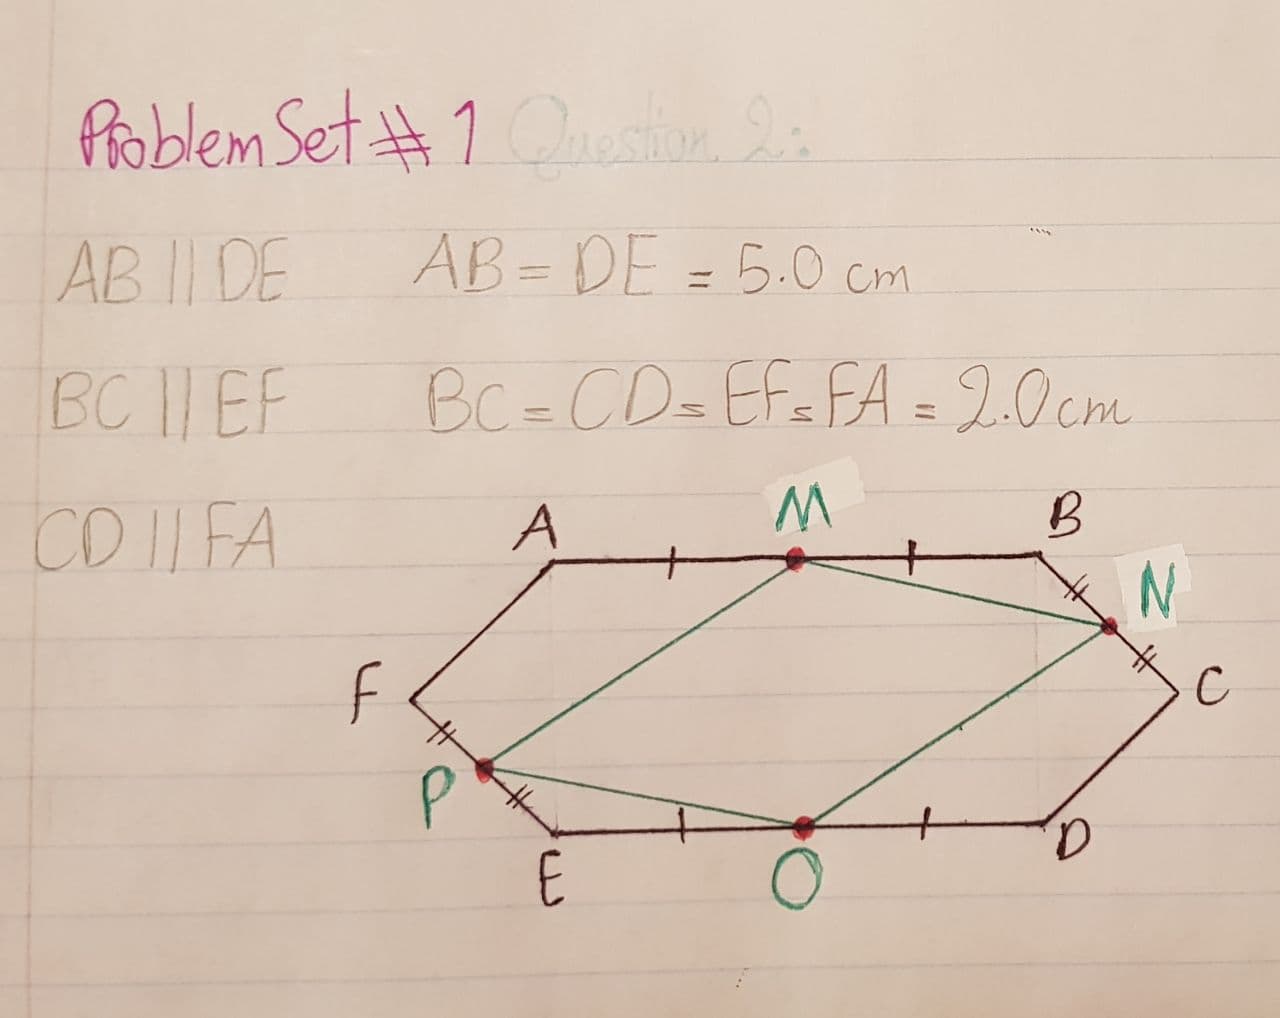 Problem Set # 1 Question 2:
AB || DE AB = DE = 5.0 cm
BC || EF BC = CD = EF = FA = 2.0 cm
CD || FA
M
A
B
N
F
C
P
D
E
O